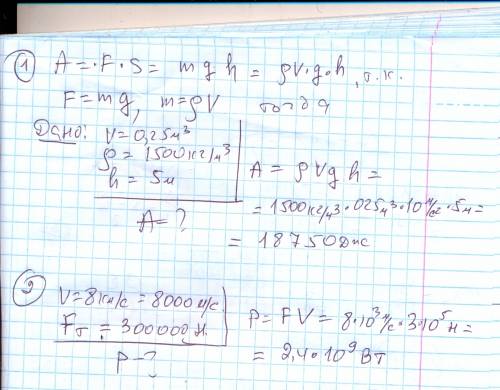 1) A = · F · S = m g h = ρV·g·h, т.к.
F = mg, m = ρV тогда
Дано:
V = 0,25 м³
ρ = 1500 кг/м³
h = 5 м
A = ?
A = ρVgh =
= 1500 кг/м³ · 025 м³ · 10 м/с² · 5 м =
= 18750 Дж
2) V = 8 км/с = 8000 м/с
Fт = 300000 Н.
P - ?
P = FV = 8·10³ м/с · 3·10⁵ Н =
= 2,4·10⁹ Вт